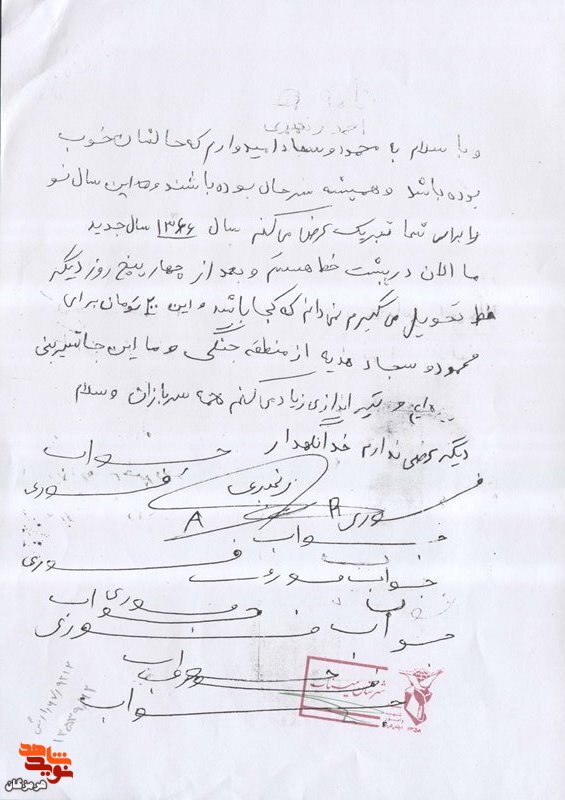 احمد رنجبری
و با سلام به محمود و سجاد امیدوارم که حالتان خوب
بوده باشد و همیشه سرحال بوده باشند و من این سال نو
را برای شما تبریک عرض می کنم سال ۱۳۶۶ سال جدید
ما الان در پشت خط هستم و بعد از چهار پنج روز دیگر
خط تحویل می گیرم نمی دانم که کجا باشد و این ۲۰ تومان برای
محمود و سجاد هدیه از منطقه جنگی و ما این جا شیرینی
و تیر اندازی زیادی کنم همه سربازان وسلام
دیگر عرضی ندارم خدانگهدار
جواب فوری
رنجبری
فوری
R
A
جواب
فوری
جواب فوری
جواب فوری
جواب فوری
جواب
جواب
نوید شاهد
هرمزگان